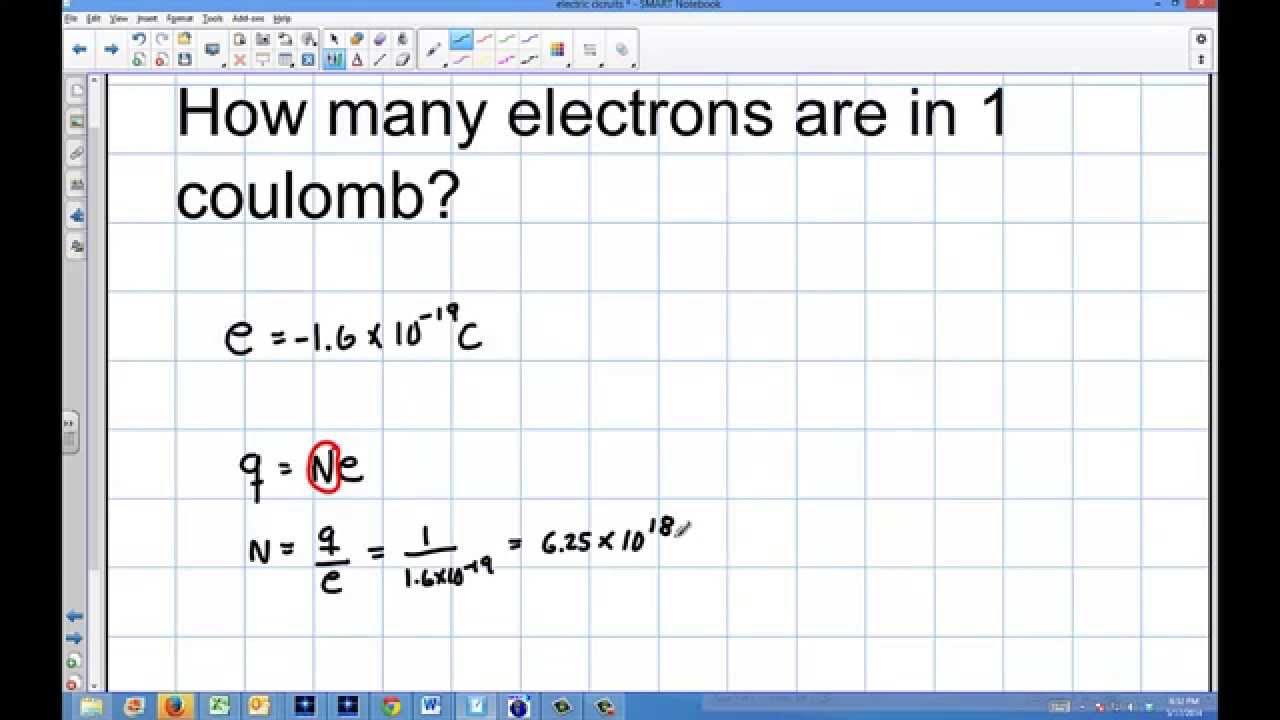 electric cicruits * - SMART Notebook
File Edit View Insert Format Tools Add-ons Help
How many electrons are in 1
coulomb?
e = -1.6 × 10⁻¹⁹ C
q = Ne
N = q/e = 1/1.6×10⁻¹⁹ = 6.25 × 10¹⁸